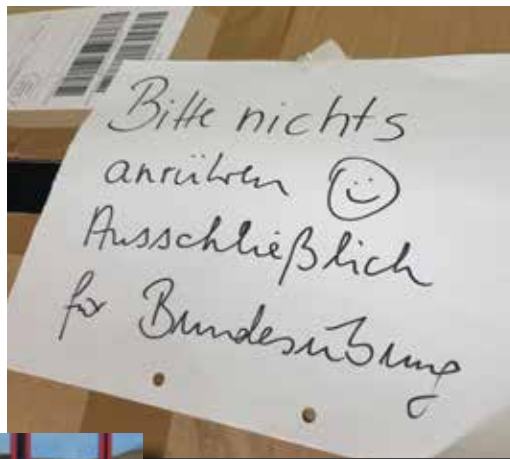 Bitte nichts
anrühren
Ausschließlich
für Bundesübung